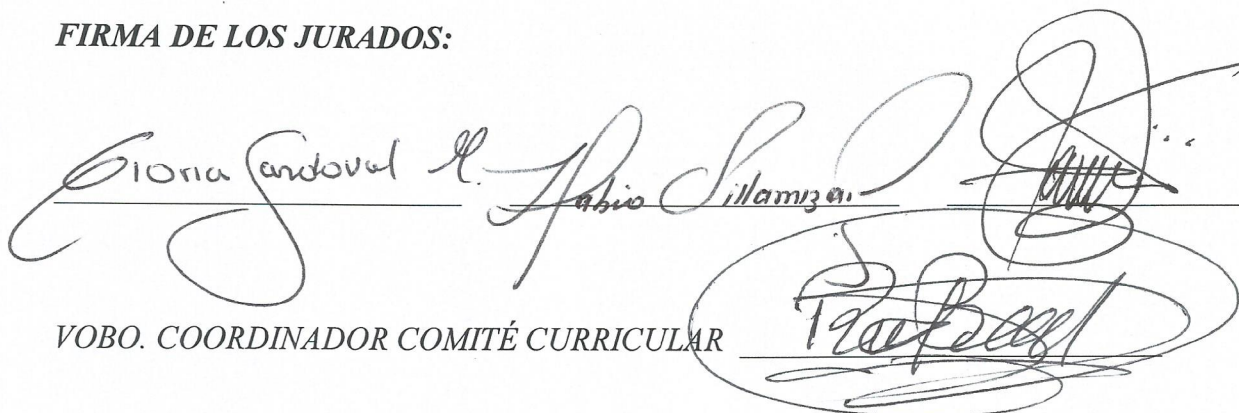 FIRMA DE LOS JURADOS:
Gloria Sandoval M. Fabio Villamizar
VOBO. COORDINADOR COMITÉ CURRICULAR